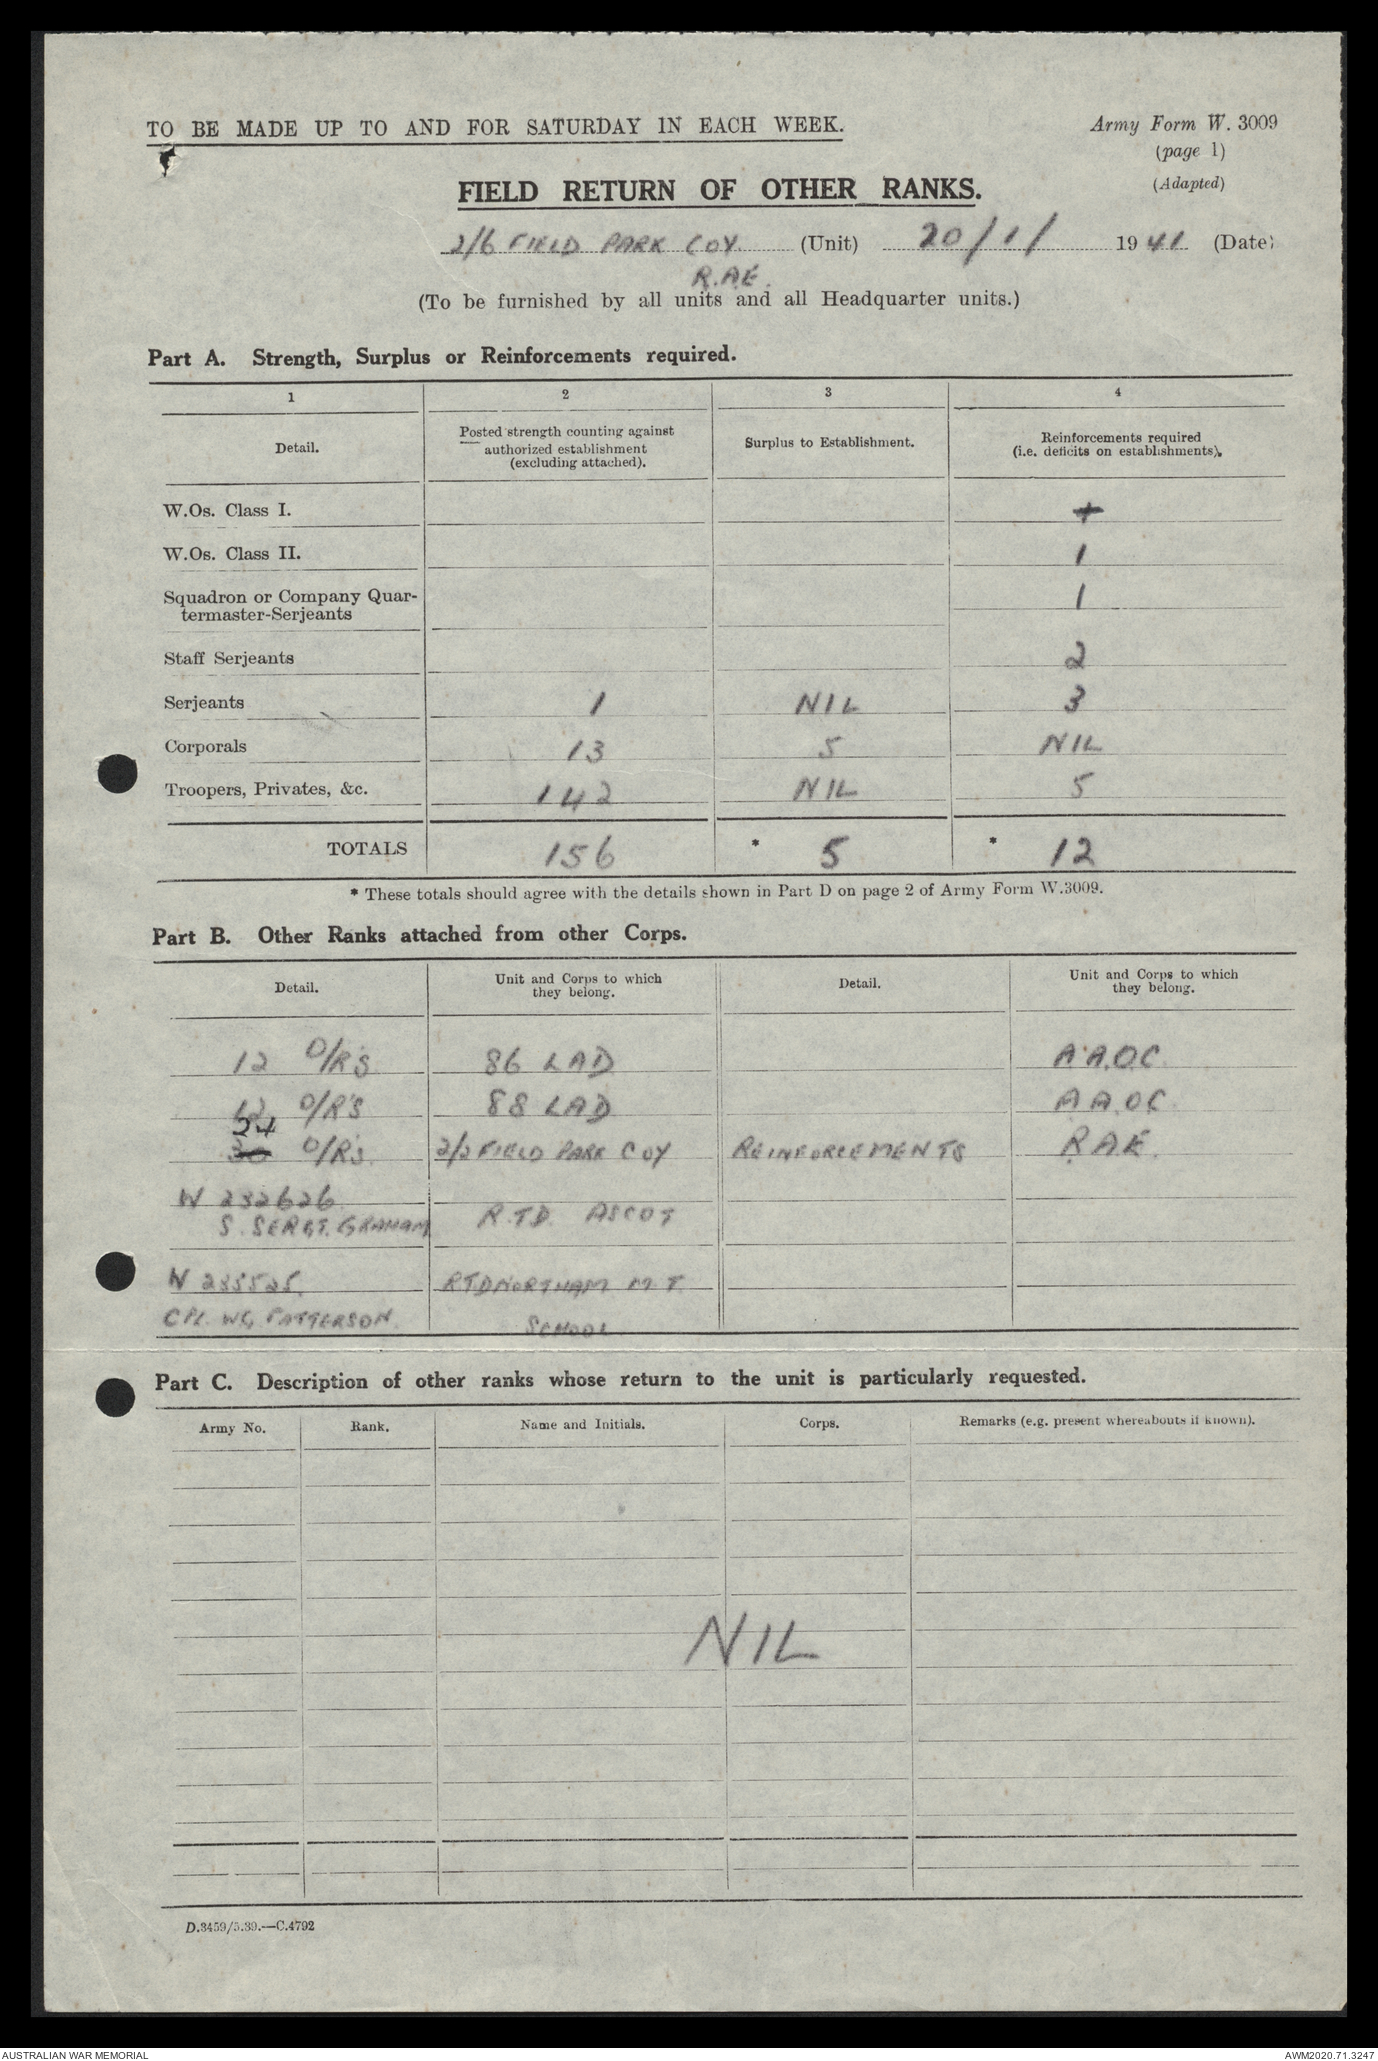 TO BE MADE UP TO AND FOR SATURDAY IN EACH WEEK.
Army Form W. 3009
(page 1)
(Adapted)
FIELD RETURN OF OTHER RANKS.
2/6 FIELD PARK COY (Unit) 20/1/ 1941 (Date)
R.A.E.
(To be furnished by all units and all Headquarter units.)
Part A. Strength, Surplus or Reinforcements required.
1 2 3 4
Detail. Posted strength counting against authorized establishment (excluding attached). Surplus to Establishment. Reinforcements required (i.e. deficits on establishments).
W.Os. Class I.
W.Os. Class II. 1
Squadron or Company Quar-
termaster-Serjeants 1
Staff Serjeants 2
Serjeants 1 NIL 3
Corporals 13 5 NIL
Troopers, Privates, &c. 142 NIL 5
TOTALS 156 * 5 * 12
* These totals should agree with the details shown in Part D on page 2 of Army Form W.3009.
Part B. Other Ranks attached from other Corps.
Detail. Unit and Corps to which they belong. Detail. Unit and Corps to which they belong.
12 O/R'S 86 LAD A.A.O.C.
12 O/R'S 88 LAD A.A.O.C.
24
30 O/R's 2/2 FIELD PARK COY REINFORCEMENTS R.A.E.
W 232626
S. SERGT. GRAHAM R.T.D. ASCOT
W 235525 RTD NORTHAM M.T.
CPL. WG PATTERSON. SCHOOL
Part C. Description of other ranks whose return to the unit is particularly requested.
Army No. Rank. Name and Initials. Corps. Remarks (e.g. present whereabouts if known).
NIL
D.3459/5.39.—C.4792
AUSTRALIAN WAR MEMORIAL
AWM2020.71.3247